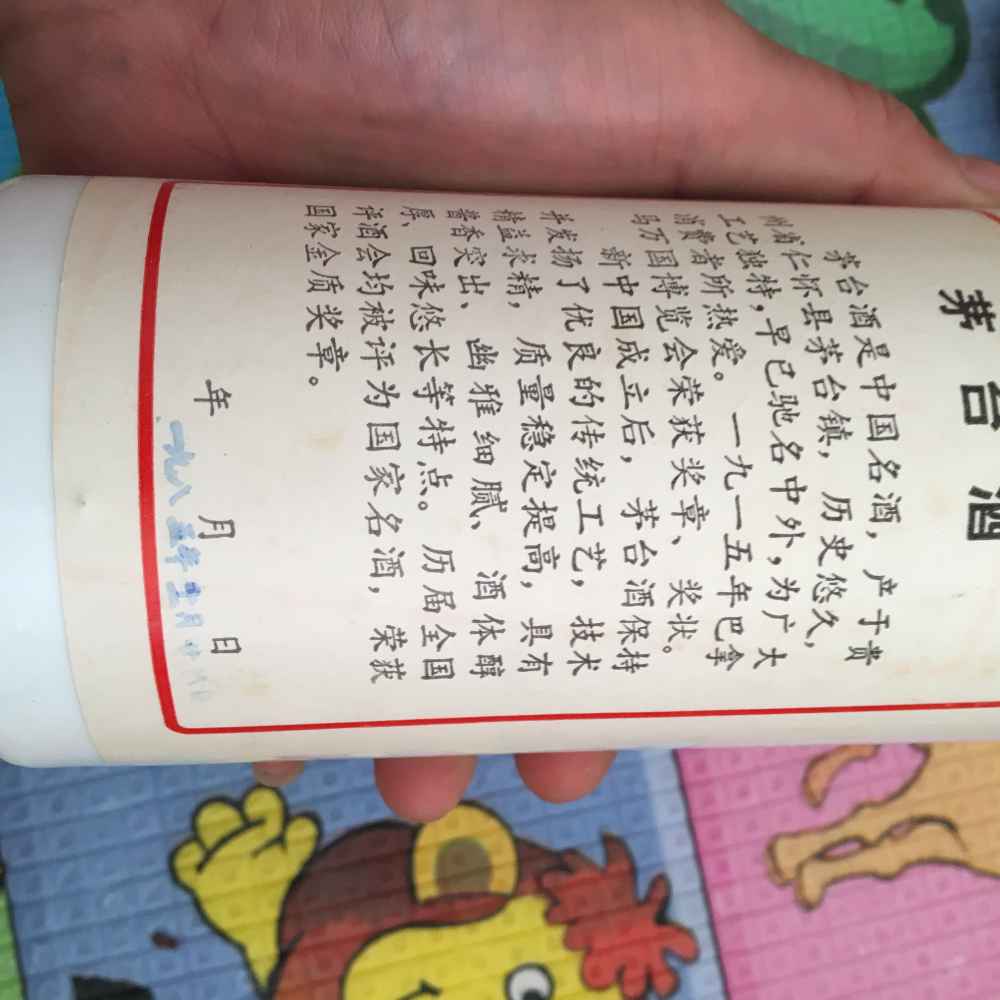 茅台酒
茅台酒是中国名酒，产于贵
州省仁怀县茅台镇，历史悠久，
工艺独特，早已驰名中外，为广大
消费者所热爱。一九一五年巴拿
马万国博览会荣获奖章、奖状。
新中国成立后，茅台酒保持
并发扬了优良的传统工艺，技术
精益求精，质量稳定提高，具有
酱香突出、幽雅细腻、酒体醇
厚、回味悠长等特点。历届全国
评酒会均被评为国家名酒，荣获
国家金质奖章。
年 月 日
一九八五年